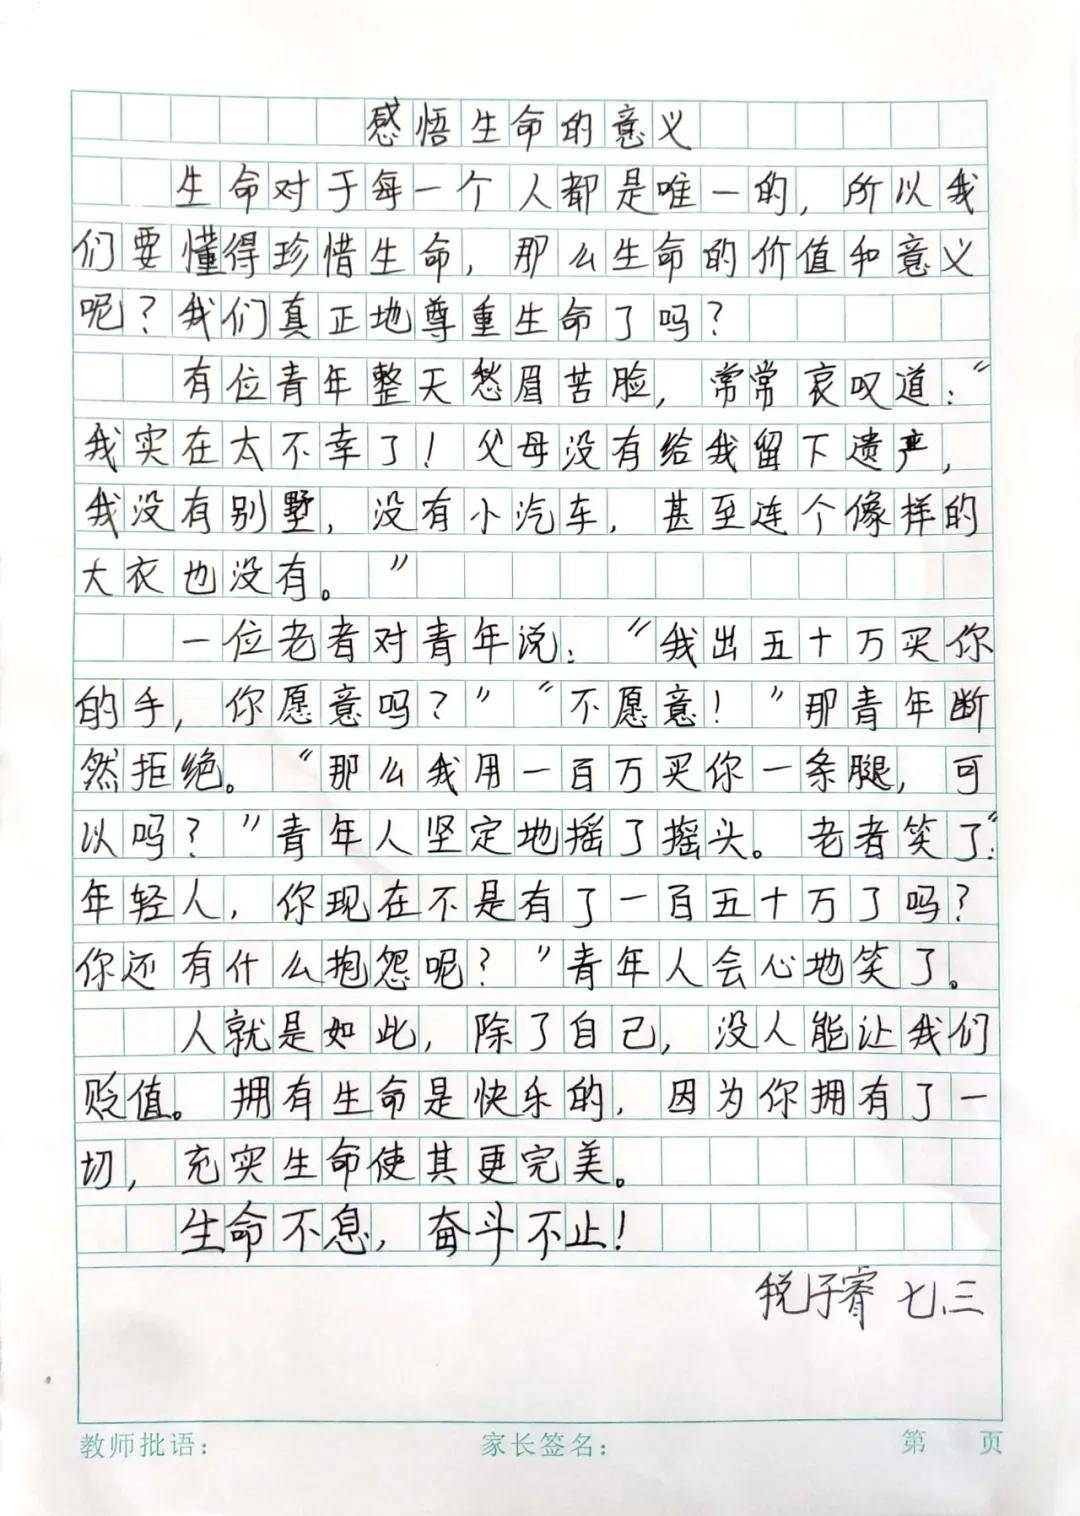 感悟生命的意义
生命对于每一个人都是唯一的，所以我
们要懂得珍惜生命，那么生命的价值和意义
呢？我们真正地尊重生命了吗？
有位青年整天愁眉苦脸，常常哀叹道：“
我实在太不幸了！父母没有给我留下遗产，
我没有别墅，没有小汽车，甚至连个像样的
大衣也没有。”
一位老者对青年说：“我出五十万买你
的手，你愿意吗？”“不愿意！”那青年断
然拒绝。“那么我用一百万买你一条腿，可
以吗？”青年人坚定地摇了摇头。老者笑了：“
年轻人，你现在不是有了一百五十万了吗？
你还有什么抱怨呢？”青年人会心地笑了。
人就是如此，除了自己，没人能让我们
贬值。拥有生命是快乐的，因为你拥有了一
切，充实生命使其更完美。
生命不息，奋斗不止！
税子睿 七.三
教师批语： 家长签名： 第 页